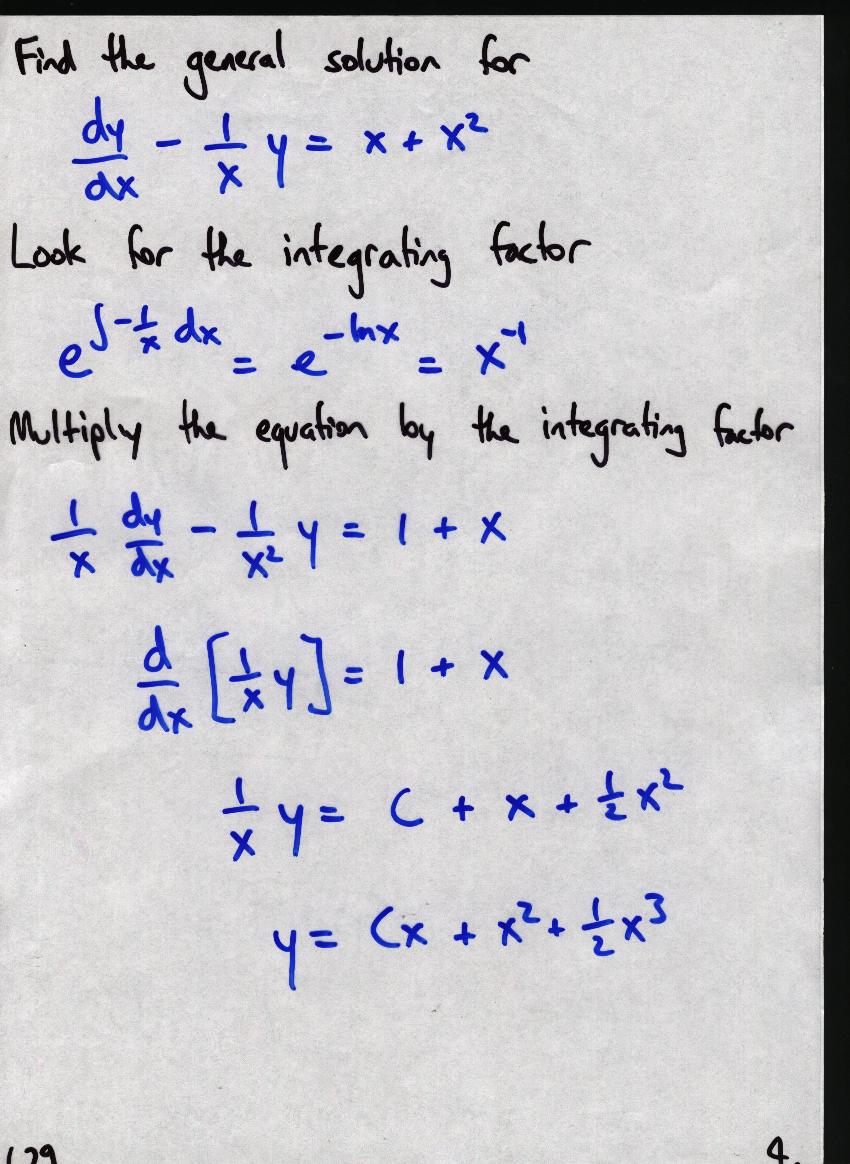 Find the general solution for
dy/dx - 1/x y = x + x²
Look for the integrating factor
e^∫-1/x dx = e^-lnx = x^-1
Multiply the equation by the integrating factor
1/x dy/dx - 1/x² y = 1 + x
d/dx [1/x y] = 1 + x
1/x y = C + x + 1/2 x²
y = Cx + x² + 1/2 x³
4.